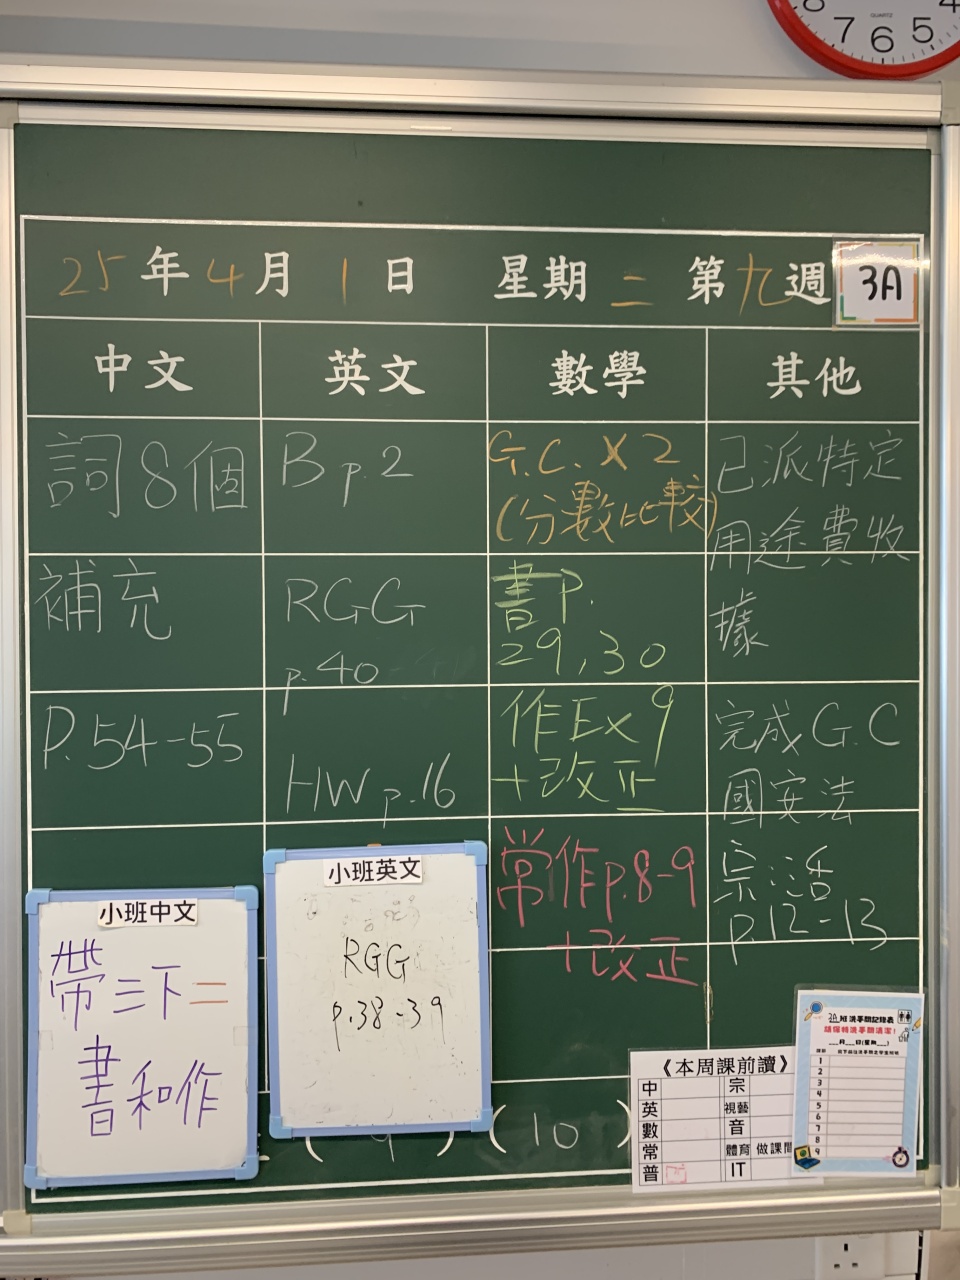 8 7 6 5 4
QUARTZ
25年4月1日 星期二 第九週 3A
中文 英文 數學 其他
詞8個
補充
P.54-55
B p.2
RGG
p.40
HW p.16
G.C. X 2
(分數比較)
書P.
29,30
作Ex9
+改正
常作p.8-9
+改正
已派特定
用途費收
據
完成G.C
國安法
宗活
p.12-13
小班中文
帶三下二
書和作
小班英文
RGG
p.38-39
(9) (10)
《本周課前讀》
中 宗
英 視藝
數 音
常 體育 做課間
普 IT
3A 班洗手間記錄表
請保持洗手間清潔!
__月__日(星期__)
1
2
3
4
5
6
7
8
9